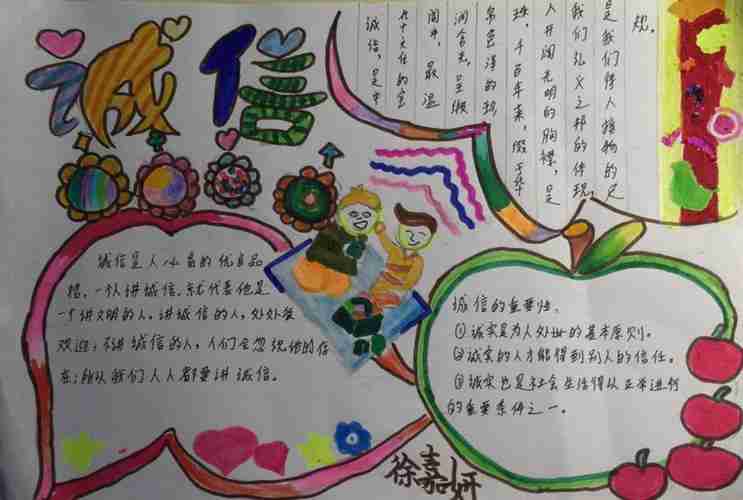 诚信
诚信，是中
闻中，最温
珠，千百年来，
人开阔光明的胸襟，是
我们 之邦的体现
是我们待人接物的尺
规。
诚信是人必备的优良品
格，一个人讲诚信，就代表他是
一个讲文明的人，讲诚信的人，处处受
欢迎；不讲诚信的人，人们会忽视他的存
在；所以我们人人都要讲诚信。
诚信的重要性：
①诚实是为人处世的基本原则。
②诚实的人才能得到别人的信任。
③诚实也是社会生活得以正常进行
的重要条件之一。
徐嘉妍